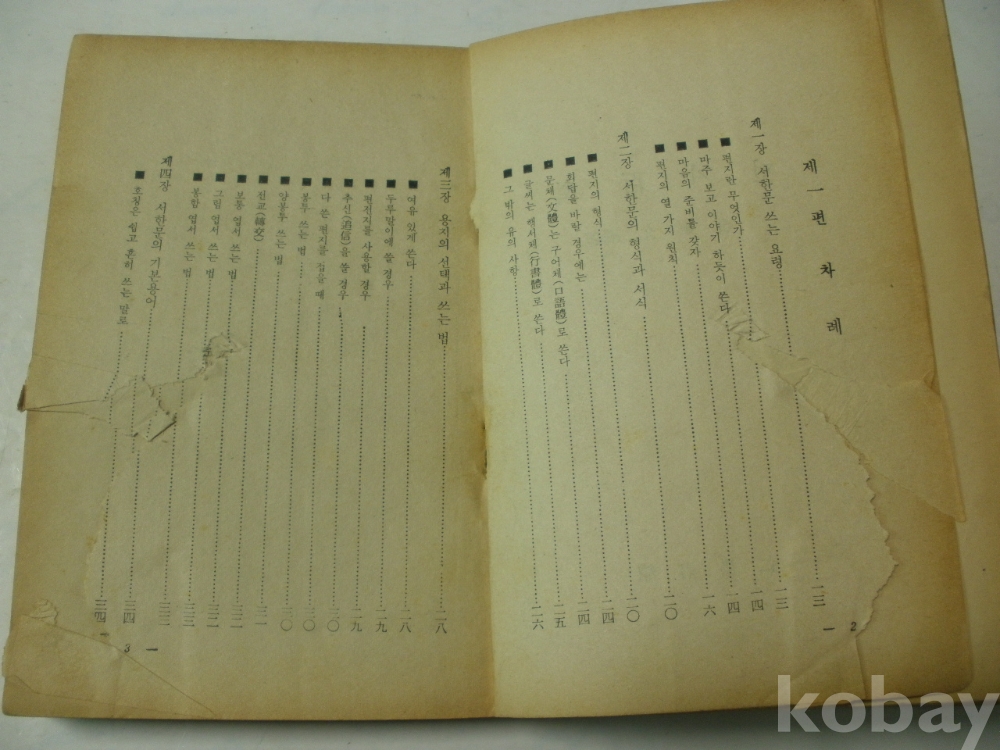 제一편 차례
제一장 서한문 쓰는 요령 一三
■ 편지란 무엇인가 一三
■ 마주 보고 이야기 하듯이 쓴다 一四
■ 마음의 준비를 갖자 一六
■ 편지의 열 가지 원칙
제二장 서한문의 형식과 서식
■ 편지의 형식 二四
■ 회답을 바랄 경우에는 二四
■ 문체(文體)는 구어체(口語體)로 쓴다 二五
■ 글씨는 행서체(行書體)로 쓴다 二六
■ 그 밖의 유의 사항
— 2
제三장 용지의 선택과 쓰는 법 二八
■ 여유 있게 쓴다 二八
■ 두루말이에 쓸 경우 二九
■ 편전지를 사용할 경우 二九
■ 추신(追信)을 쓸 경우 三〇
■ 다 쓴 편지를 접을 때 三〇
■ 봉투 쓰는 법 三〇
■ 양봉투 쓰는 법 三〇
■ 전교(轉交) 三一
■ 보통 엽서 쓰는 법 三二
■ 그림 엽서 쓰는 법 三二
■ 봉함 엽서 쓰는 법 三三
제四장 서한문의 기본용어 三三
■ 호칭은 쉽고 흔히 쓰는 말로 三四
三四
— 3 —
kobay